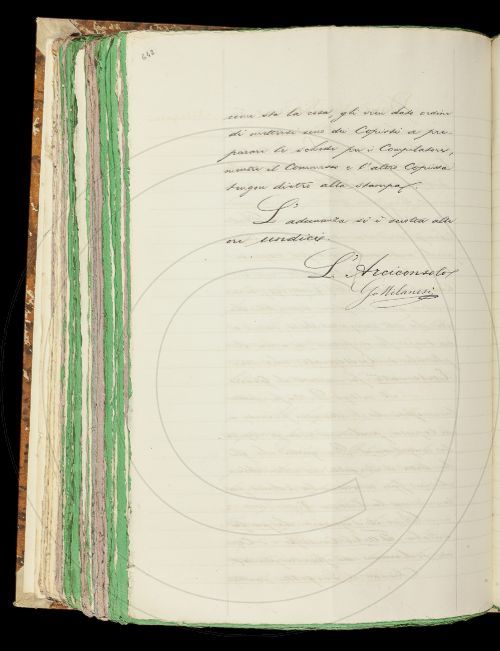 642
come sta la cosa, gli vien dato ordine
di mettere uno dei Copisti a pre-
parare le schede per i Compilatori,
mentre il Comanducci e l'altro Copista
tengon dietro alla stampa.
L'adunanza si è sciolta alle
ore undici.
L'Arciconsolo
G. Milanesi